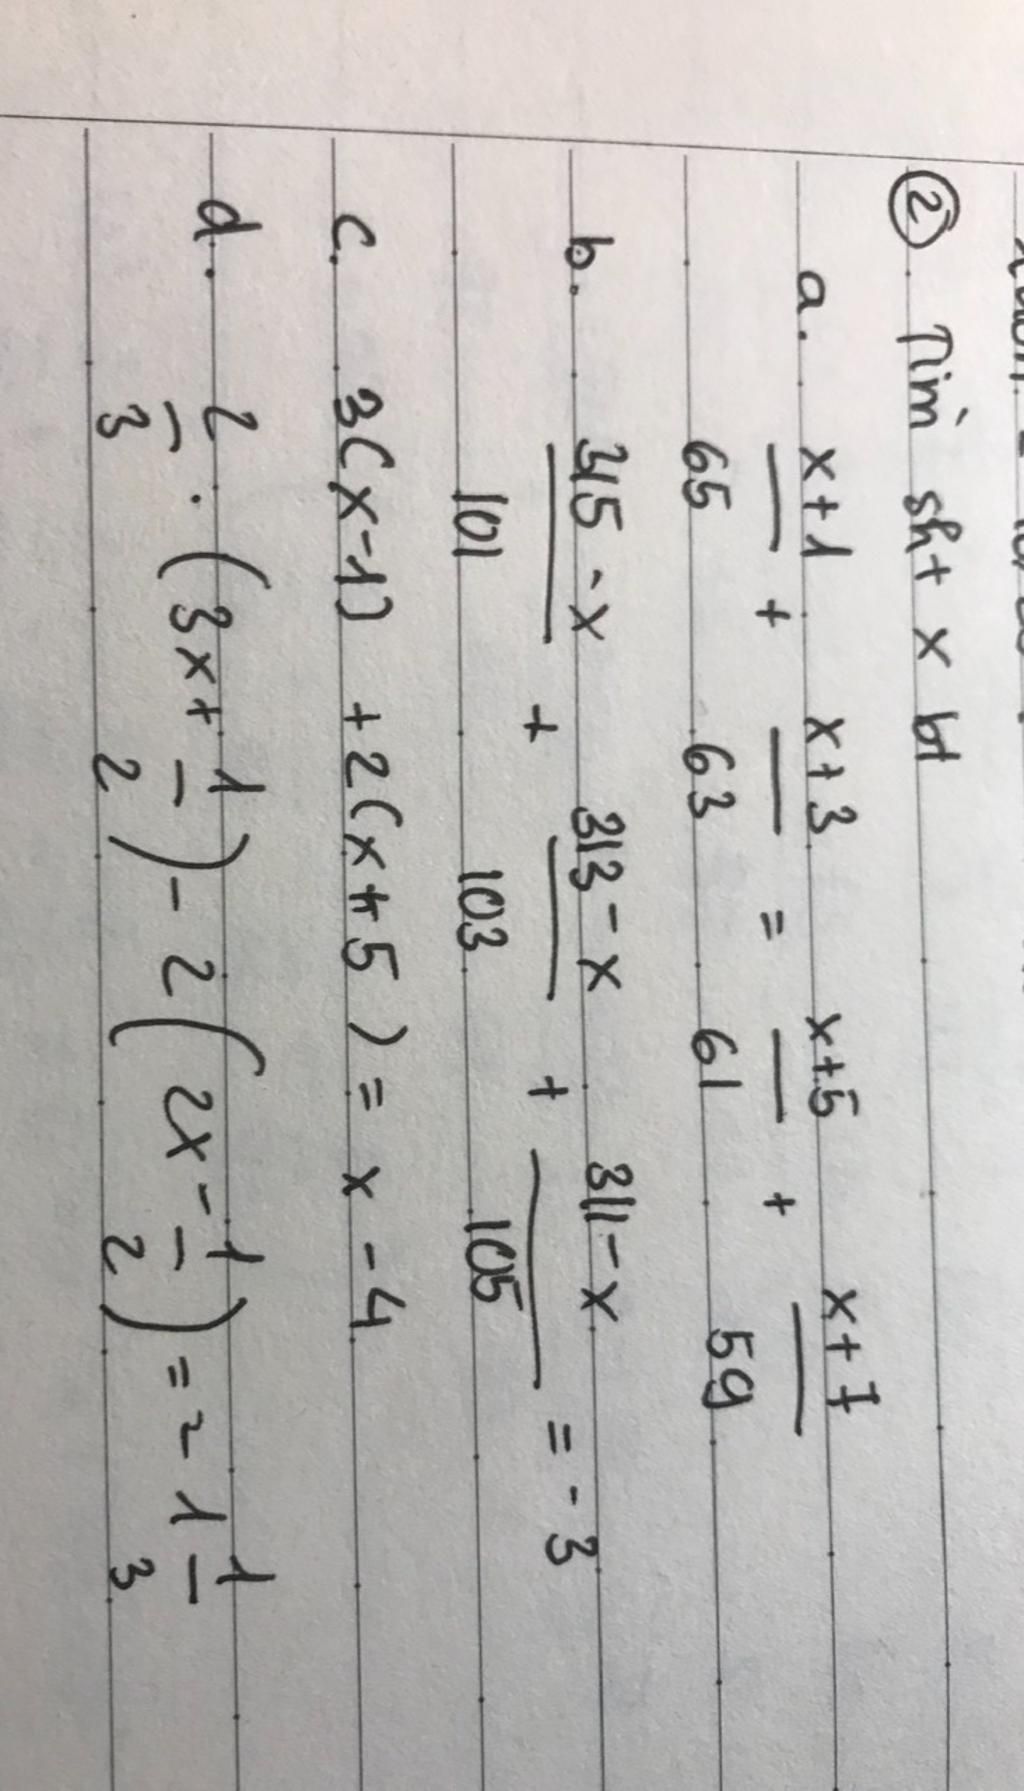 ② Tìm sht x bt
a. x+1/65 + x+3/63 = x+5/61 + x+7/59
b. 315-x/101 + 313-x/103 + 311-x/105 = -3
c. 3(x-1) + 2(x+5) = x-4
d. 2/3 . (3x+1/2) - 2(2x-1/2) = -1 1/3